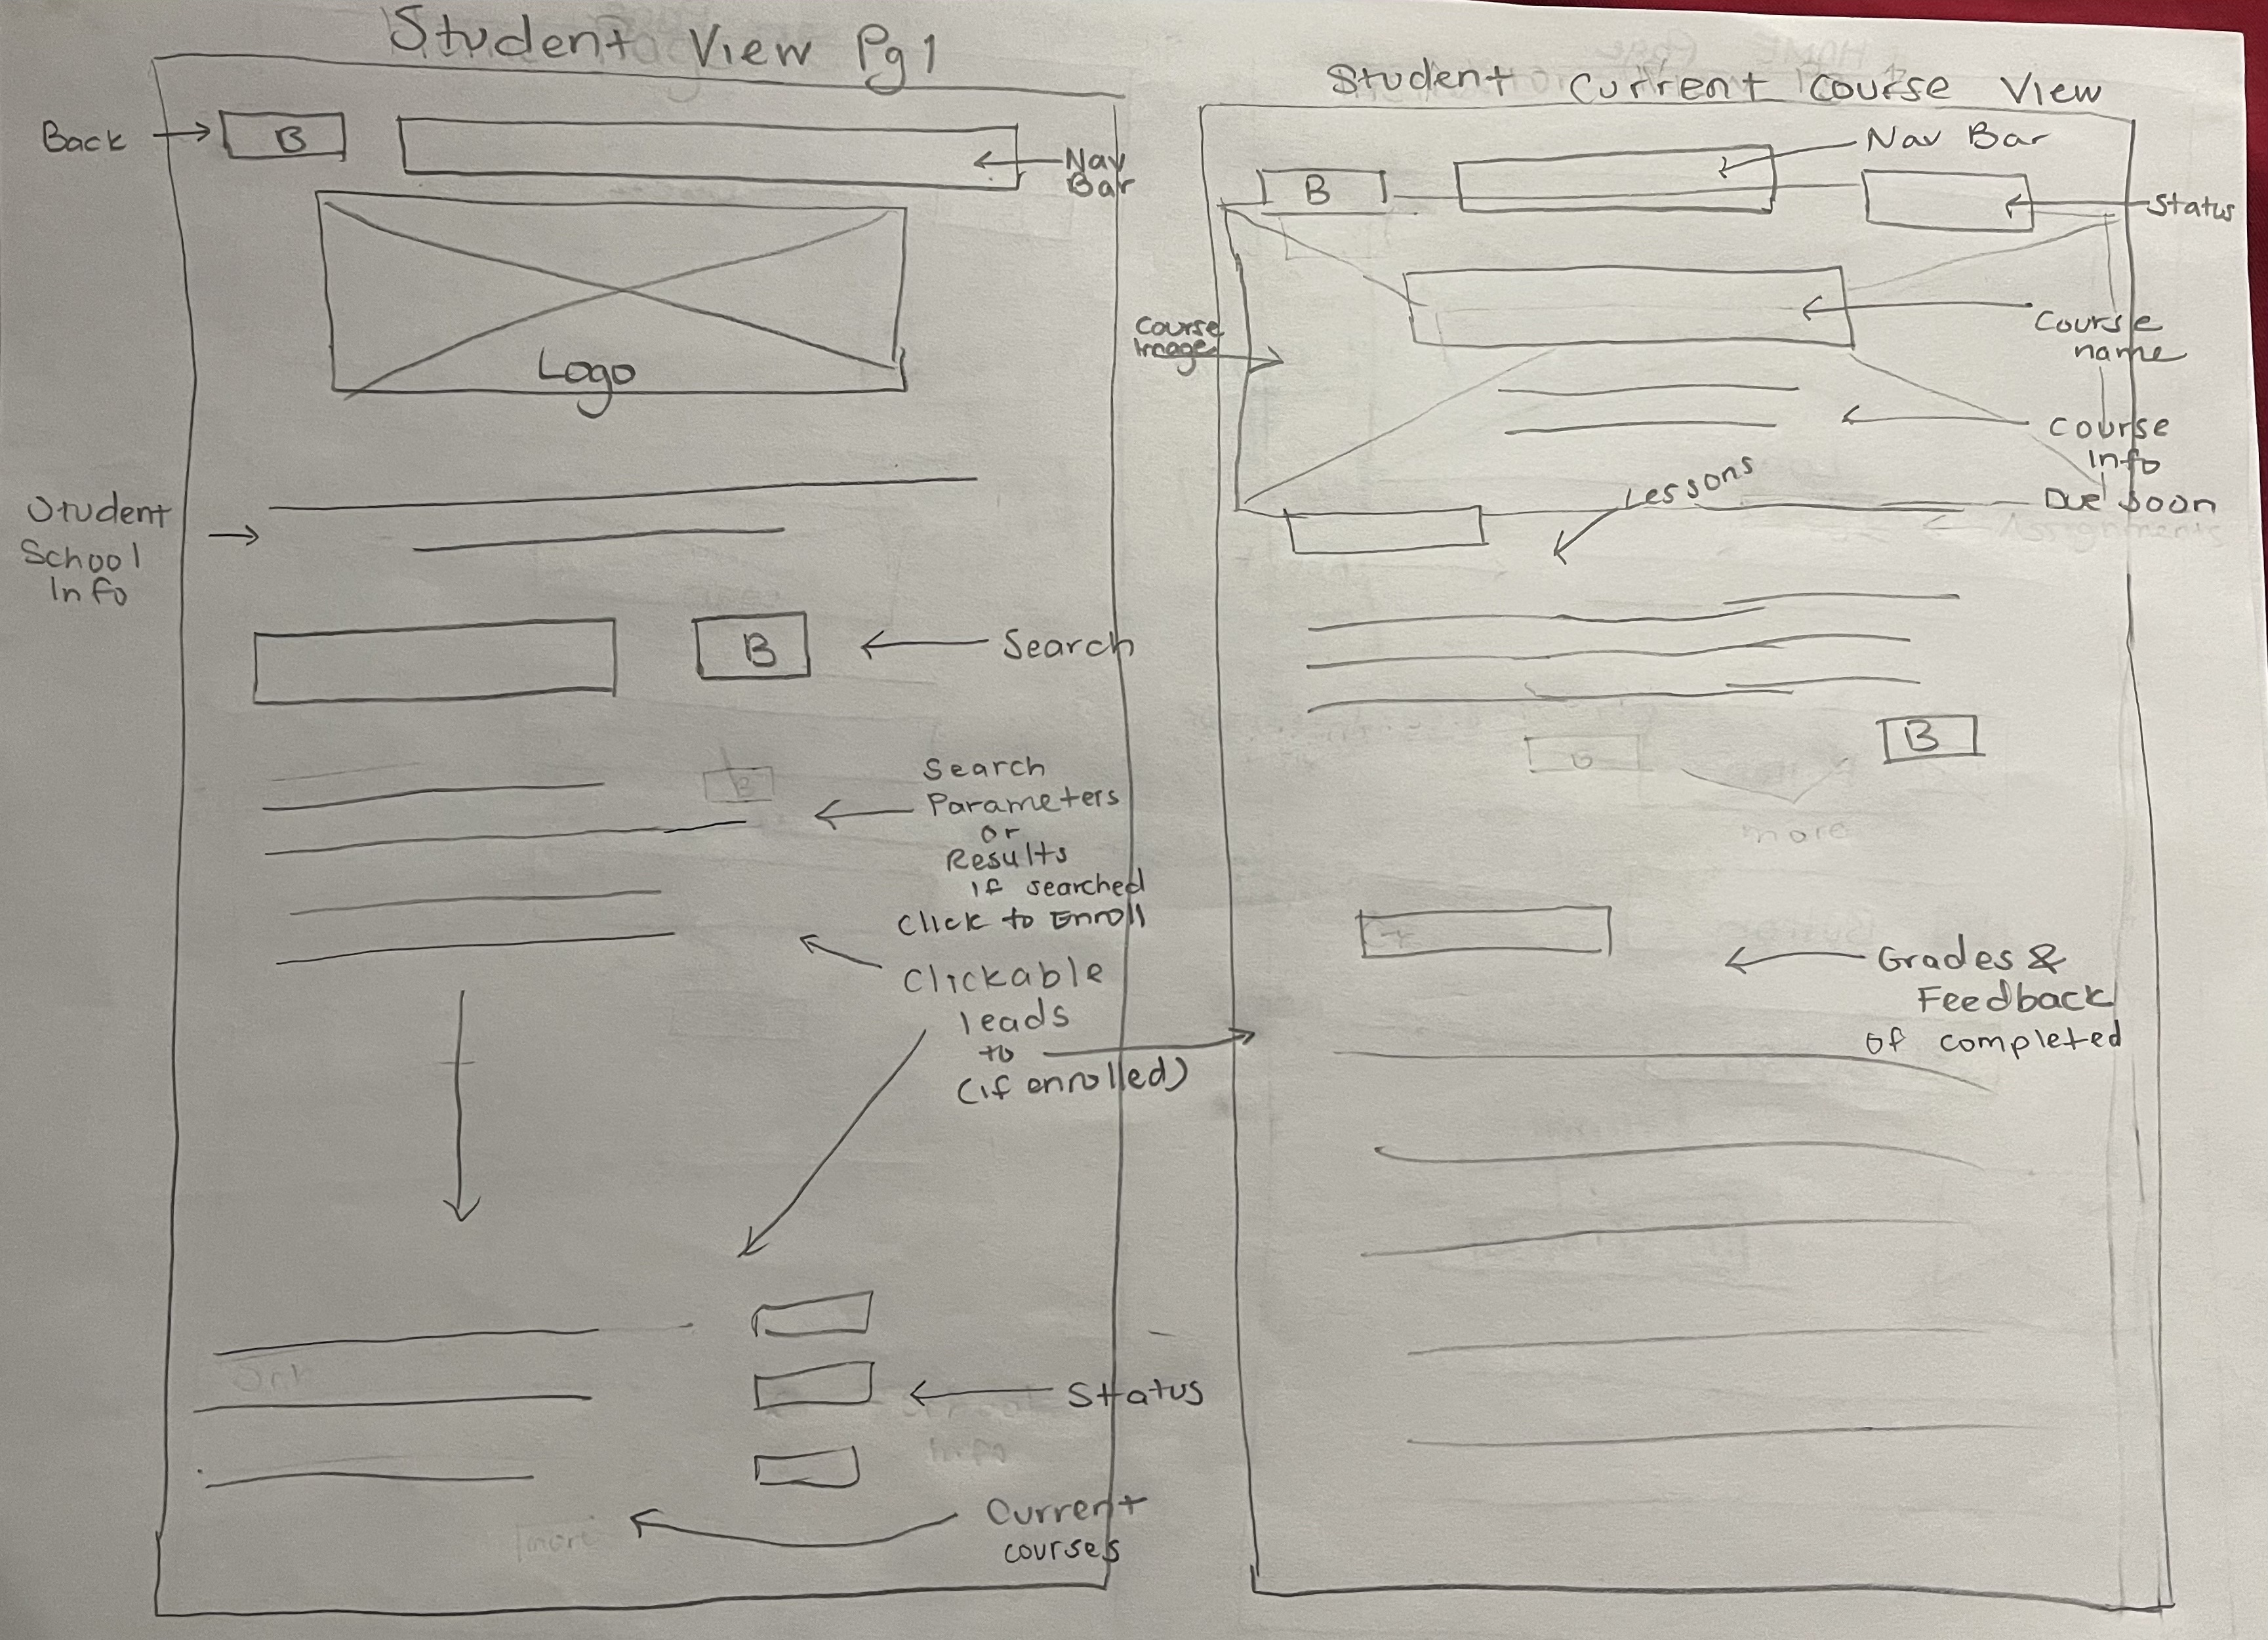 Student View Pg 1
Back
B
Nav
Bar
Logo
Student
School
Info
B
Search
Search
Parameters
or
Results
If searched
Click to Enroll
Clickable
leads
to
(if enrolled)
Status
Current
courses
Student Current Course View
Nav Bar
B
Status
Course
Image
Course
name
Course
Info
Due soon
Lessons
Assignments
B
more
Grades &
Feedback
of completed